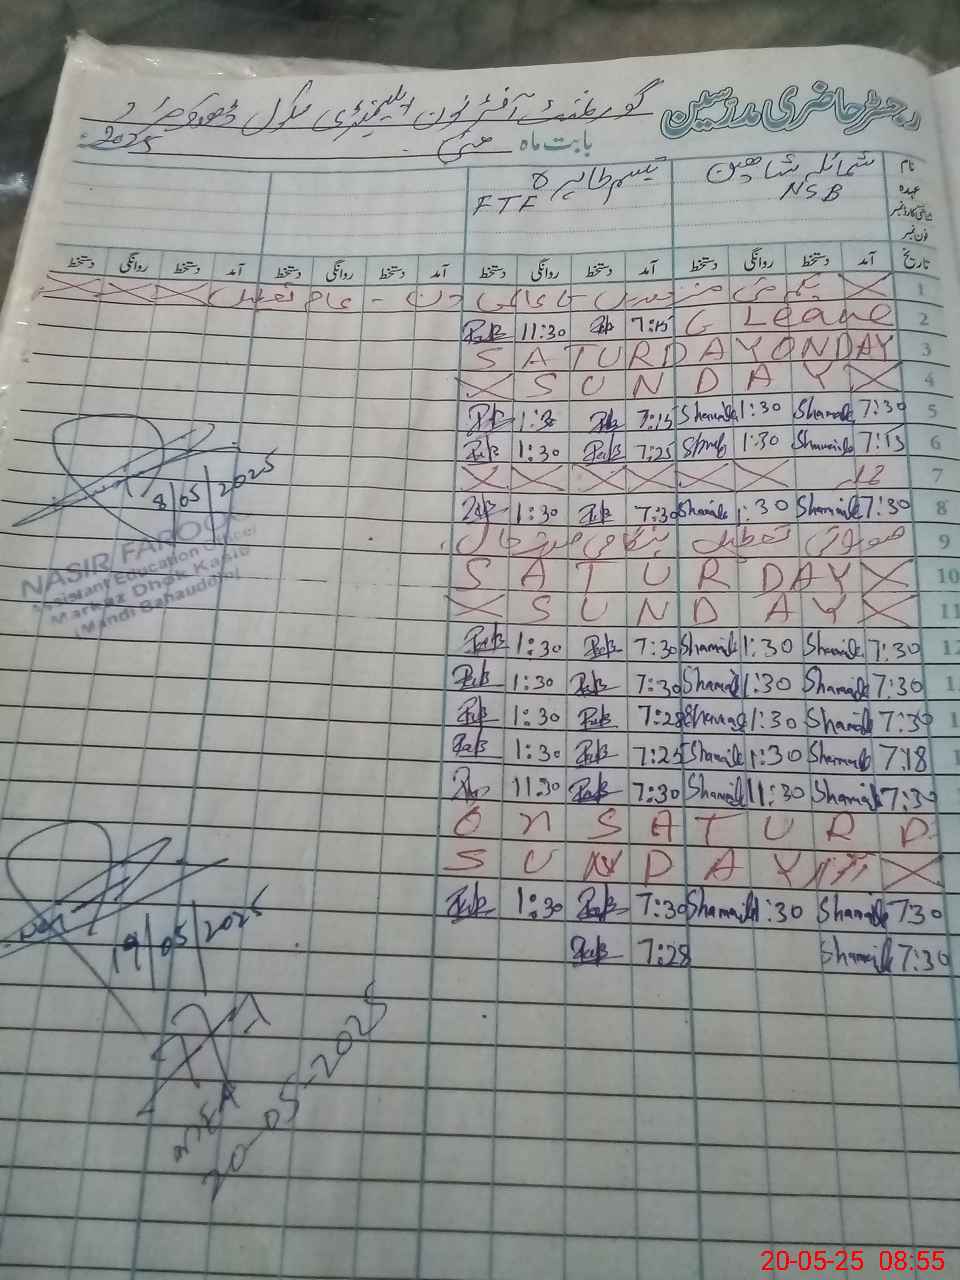 رجسٹر حاضری مدرسین گورنمنٹ آفٹر نون ایلیمنٹری سکول
بابت ماہ مئی 2025
نام شمائلہ شاہین تبسم طاہرہ
عہدہ NSB FTF
شناختی کارڈ نمبر
فون نمبر
تاریخ آمد دستخط روانگی دستخط آمد دستخط روانگی دستخط آمد دستخط روانگی دستخط آمد دستخط روانگی دستخط
1 یکم مئی مزدوروں کا عالمی دن - عام تعطیل
2 C Leave 7:15 11:30
3 SATURDAY
4 SUNDAY
5 7:30 Shamaila 1:30 Shamaila 7:15 1:30
6 7:15 Shamaila 1:30 7:25 1:30
7
8 7:30 Shamaila 1:30 Shamaila 7:30 1:30
9 تعطیل ہنگامی صورتحال
10 SATURDAY
11 SUNDAY
12 7:30 Shamaila 1:30 Shamaila 7:30 1:30
7:30 Shamaila 1:30 Shamaila 7:30 1:30
7:30 Shamaila 1:30 Shamaila 7:28 1:30
7:18 Shamaila 1:30 Shamaila 7:25 1:30
7:30 Shamaila 11:30 Shamaila 7:30 11:30
ON SATURD
SUNDAY
7:30 Shamaila 1:30 Shamaila 7:30 1:30
7:30 Shamaila 7:28
8/05/2025
NASIR FAROOQ
Assistant Education Officer
Markaz Dhok Kasib
(Mandi Bahauddin)
19/05/2025
MEA
20-05-2025
20-05-25 08:55